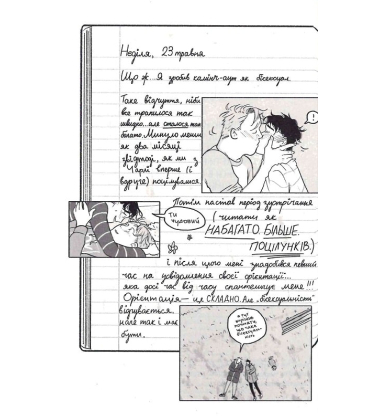 Неділя, 23 травня
Що ж... Я зробив камінг-аут як бісексуал
Таке відчуття, ніби
все трапилося так
швидко, але сталося так
багато. Минуло менше
як два місяці
звідтоді, як ми з
Чарлі вперше (і
вдруге) поцілувалися.
!
Потім настав період зустрічання
(читати як
НАБАГАТО БІЛЬШЕ
ПОЦІЛУНКІВ.)
ТИ
ЧУДОВИЙ
і після цього мені знадобився певний
час на усвідомлення своєї орієнтації...
яка досі час від часу спантеличує мене!!!
Орієнтація — це СКЛАДНО. Але бісексуальність
відчувається,
наче так і має
бути.